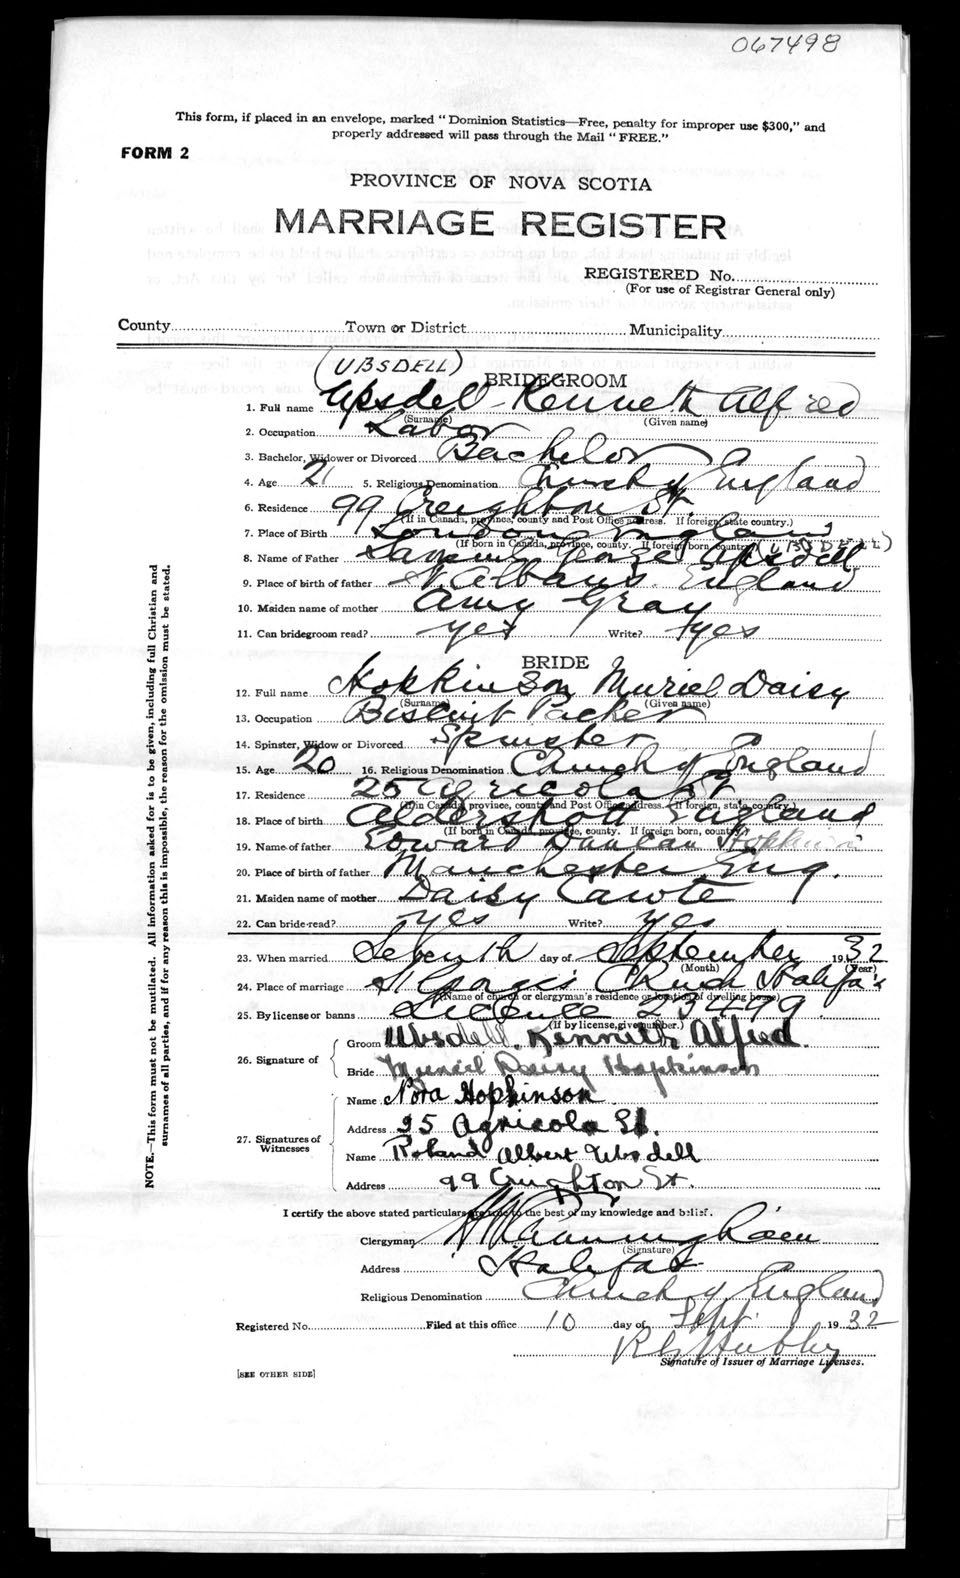 067498
This form, if placed in an envelope, marked "Dominion Statistics—Free, penalty for improper use $300," and
properly addressed will pass through the Mail "FREE."
FORM 2
PROVINCE OF NOVA SCOTIA
MARRIAGE REGISTER
REGISTERED No.
(For use of Registrar General only)
County Town or District Municipality
(UBSDELL)
BRIDEGROOM
1. Full name Upsdell Kenneth Alfred
(Surname) (Given name)
2. Occupation Labor
3. Bachelor, Widower or Divorced Bachelor
4. Age 21 5. Religious Denomination Church of England
6. Residence 99 Creighton St.
(If in Canada, province, county and Post Office address. If foreign, state country.)
7. Place of Birth London England
(If born in Canada, province, county. If foreign born, country.) (UBSDELL)
8. Name of Father George Upsdell
9. Place of birth of father St Albans England
10. Maiden name of mother Amy Gray
11. Can bridegroom read? yes Write? yes
BRIDE
12. Full name Hopkinson Muriel Daisy
(Surname) (Given name)
13. Occupation Biscuit Packer
14. Spinster, Widow or Divorced Spinster
15. Age 20 16. Religious Denomination Church of England
17. Residence 25 Agricola St
(If in Canada, province, county and Post Office address. If foreign, state country.)
18. Place of birth Aldershott England
(If born in Canada, province, county. If foreign born, country.)
19. Name of father Edward Duncan Hopkinson
20. Place of birth of father Manchester Eng.
21. Maiden name of mother Daisy Cawte
22. Can bride read? yes Write? yes
23. When married Seventh day of September 1932
(Month) (Year)
24. Place of marriage Church Halifax
(Name of church or clergyman's residence or location of dwelling house)
25. By license or banns License 23499
(If by license, give number.)
26. Signature of
Groom Ubsdell. Kenneth Alfred.
Bride Muriel Daisy Hopkinson
27. Signatures of Witnesses
Name Nora Hopkinson
Address 25 Agricola St.
Name Roland Albert Ubsdell
Address 99 Creighton St.
I certify the above stated particulars are true to the best of my knowledge and belief.
Clergyman
(Signature)
Address Halifax
Religious Denomination Church of England
Registered No. Filed at this office 10 day of Sept. 1932
Signature of Issuer of Marriage Licenses.
[SEE OTHER SIDE]
NOTE.—This form must not be mutilated. All information asked for is to be given, including full Christian and
surnames of all parties, and if for any reason this is impossible, the reason for the omission must be stated.